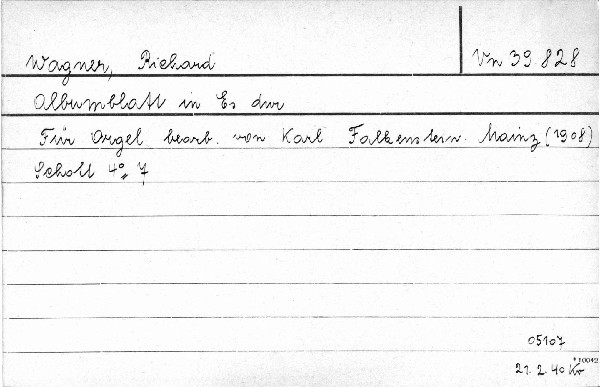 Wagner, Richard Vn 39.828
Albumblatt in Es dur
Für Orgel bearb. von Karl Falkenstern. Mainz (1908)
Schott 4° 7
05107
*10042
21.2.40 Kr